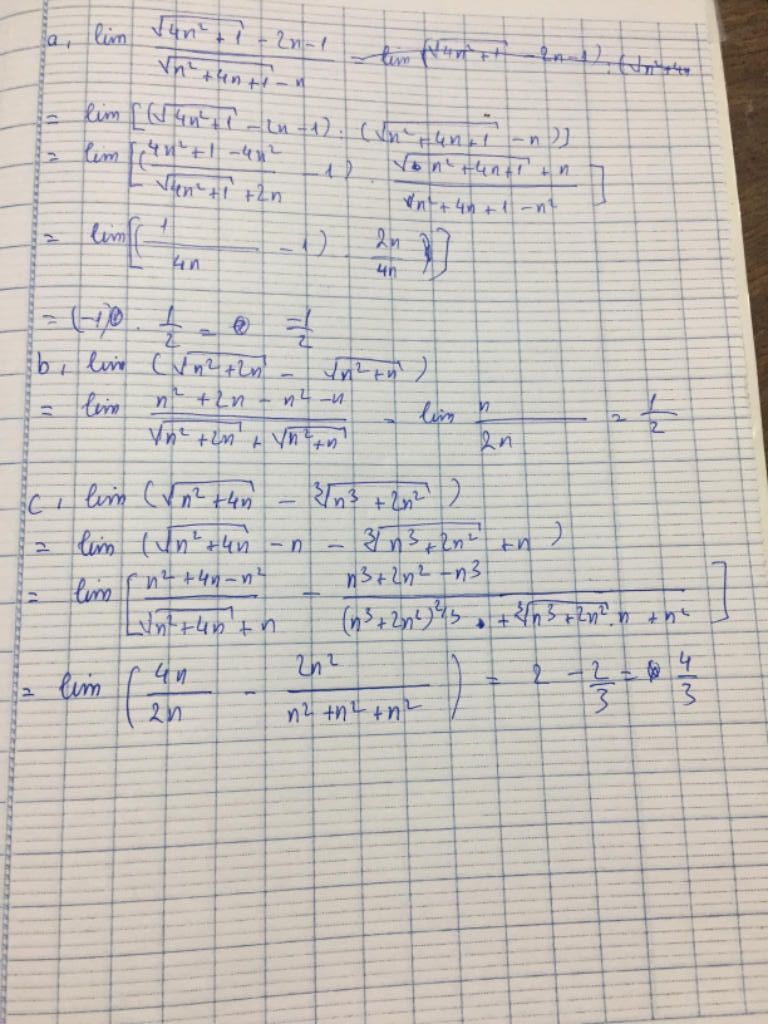 a, lim (√(4n²+1) - 2n-1)/(√(n²+4n+1) - n) = lim (√(4n²+1) - 2n-1) : (√n²+4n
= lim [(√(4n²+1) - 2n-1) : (√(n²+4n+1) - n)]
= lim [((4n²+1-4n²)/(√(4n²+1) + 2n) - 1) . (√(n²+4n+1) + n)/(n²+4n+1-n²)]
= lim [(1/4n - 1) . 2n/4n]
= (-1) . 1/2 = -1/2
b, lim (√(n²+2n) - √(n²+n))
= lim (n²+2n-n²-n)/(√(n²+2n) + √(n²+n)) = lim n/2n = 1/2
c, lim (√(n²+4n) - ³√(n³+2n²))
= lim (√(n²+4n) - n - ³√(n³+2n²) + n)
= lim [(n²+4n-n²)/(√(n²+4n) + n) - (n³+2n²-n³)/((n³+2n²)^(2/3) + ³√(n³+2n²).n + n²)]
= lim (4n/2n - 2n²/(n²+n²+n²)) = 2 - 2/3 = 4/3